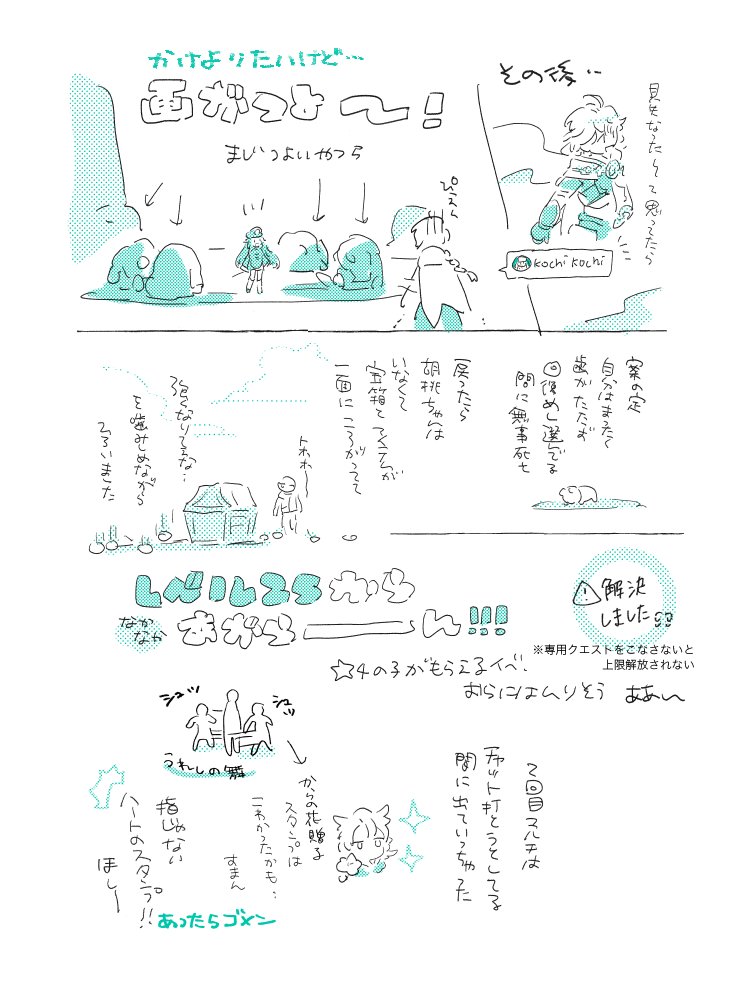 その後…
見失なったらって思ってたら
kochi kochi
かけよりたいけど…
画がつよ〜！
まじつよいやつら
ぴぇぇ
案の定
自分はまったく
歯がたたず
回復めし選んでる
間に無事死亡
戻ったら
胡桃ちゃんは
いなくて
宝箱とアイテムが
一面にころがってて
トわわー
強くなりてぇな…
を噛みしめながら
ひろいました
レベル25から
なかなか
あがらーーーん!!!
解決
しました
※専用クエストをこなさないと
上限解放されない
☆4の子がもらえるイベ.
おらにはムリそう
ああん
2回目マルチは
チャット打とうとしてる
間に出ていっちゃった
シュッ
シュッ
うれしの舞
からの花贈る
スタンプは
こわかったかも…
すまん
指じゃない
ハートのスタンプ!!
ほしー
あったらゴメン